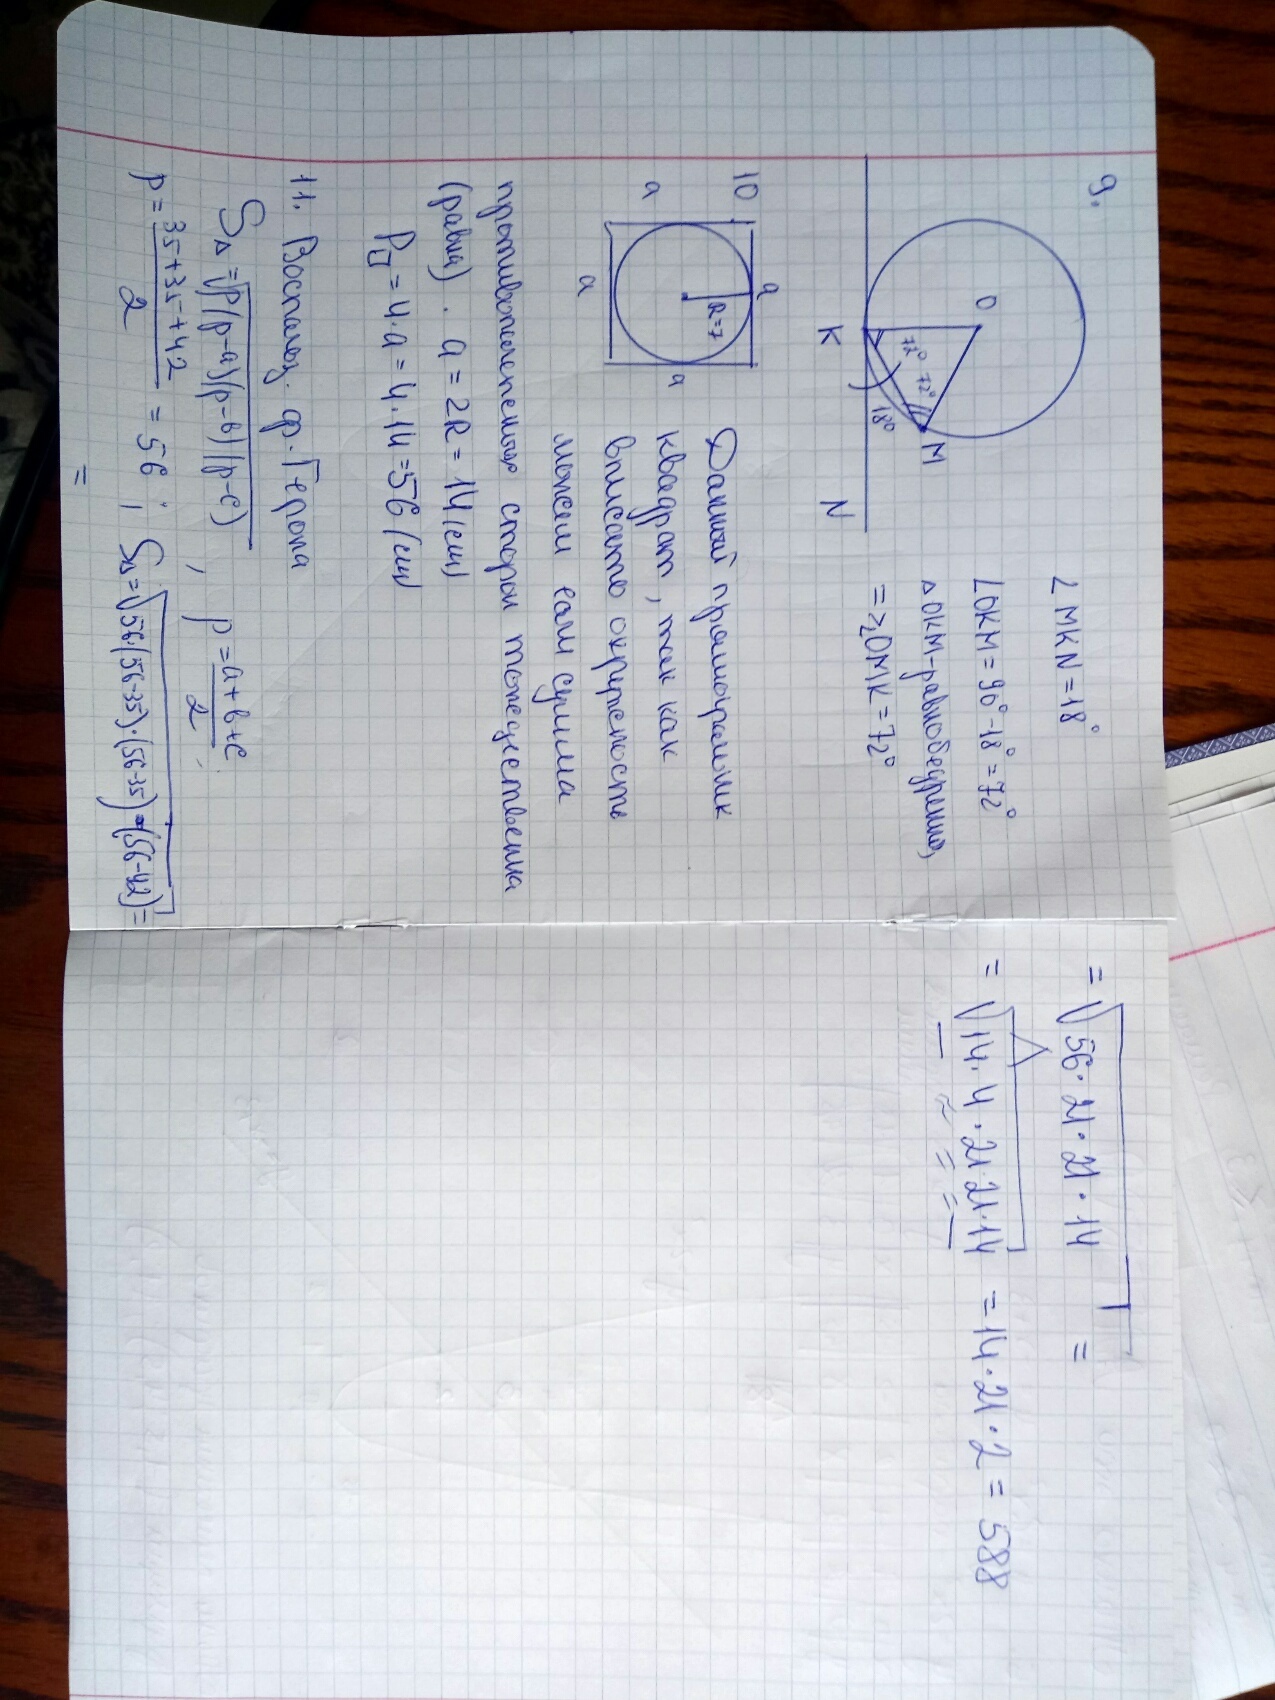 9.
O
72° 72°
18°
K
M
N
∠MKN=18°
∠OKM=90°-18°=72°
△OKM-равнобедренный,
=>∠OMK=72°
10
a
a
a
a
R=7
Данный прямоугольник
квадрат, так как
вписать окружность
можем если сумма
противоположных сторон тождественна
(равна). a=2R=14(см)
P□=4·a=4·14=56(см)
11. Воспольз. ф. Герона
S△=√p(p-a)(p-b)(p-c), p=a+b+c/2;
p=35+35+42/2=56; S△=√56·(56-35)·(56-35)·(56-42)=
=
=√56·21·21·14 =
=√14·4·21·21·14 =14·21·2=588